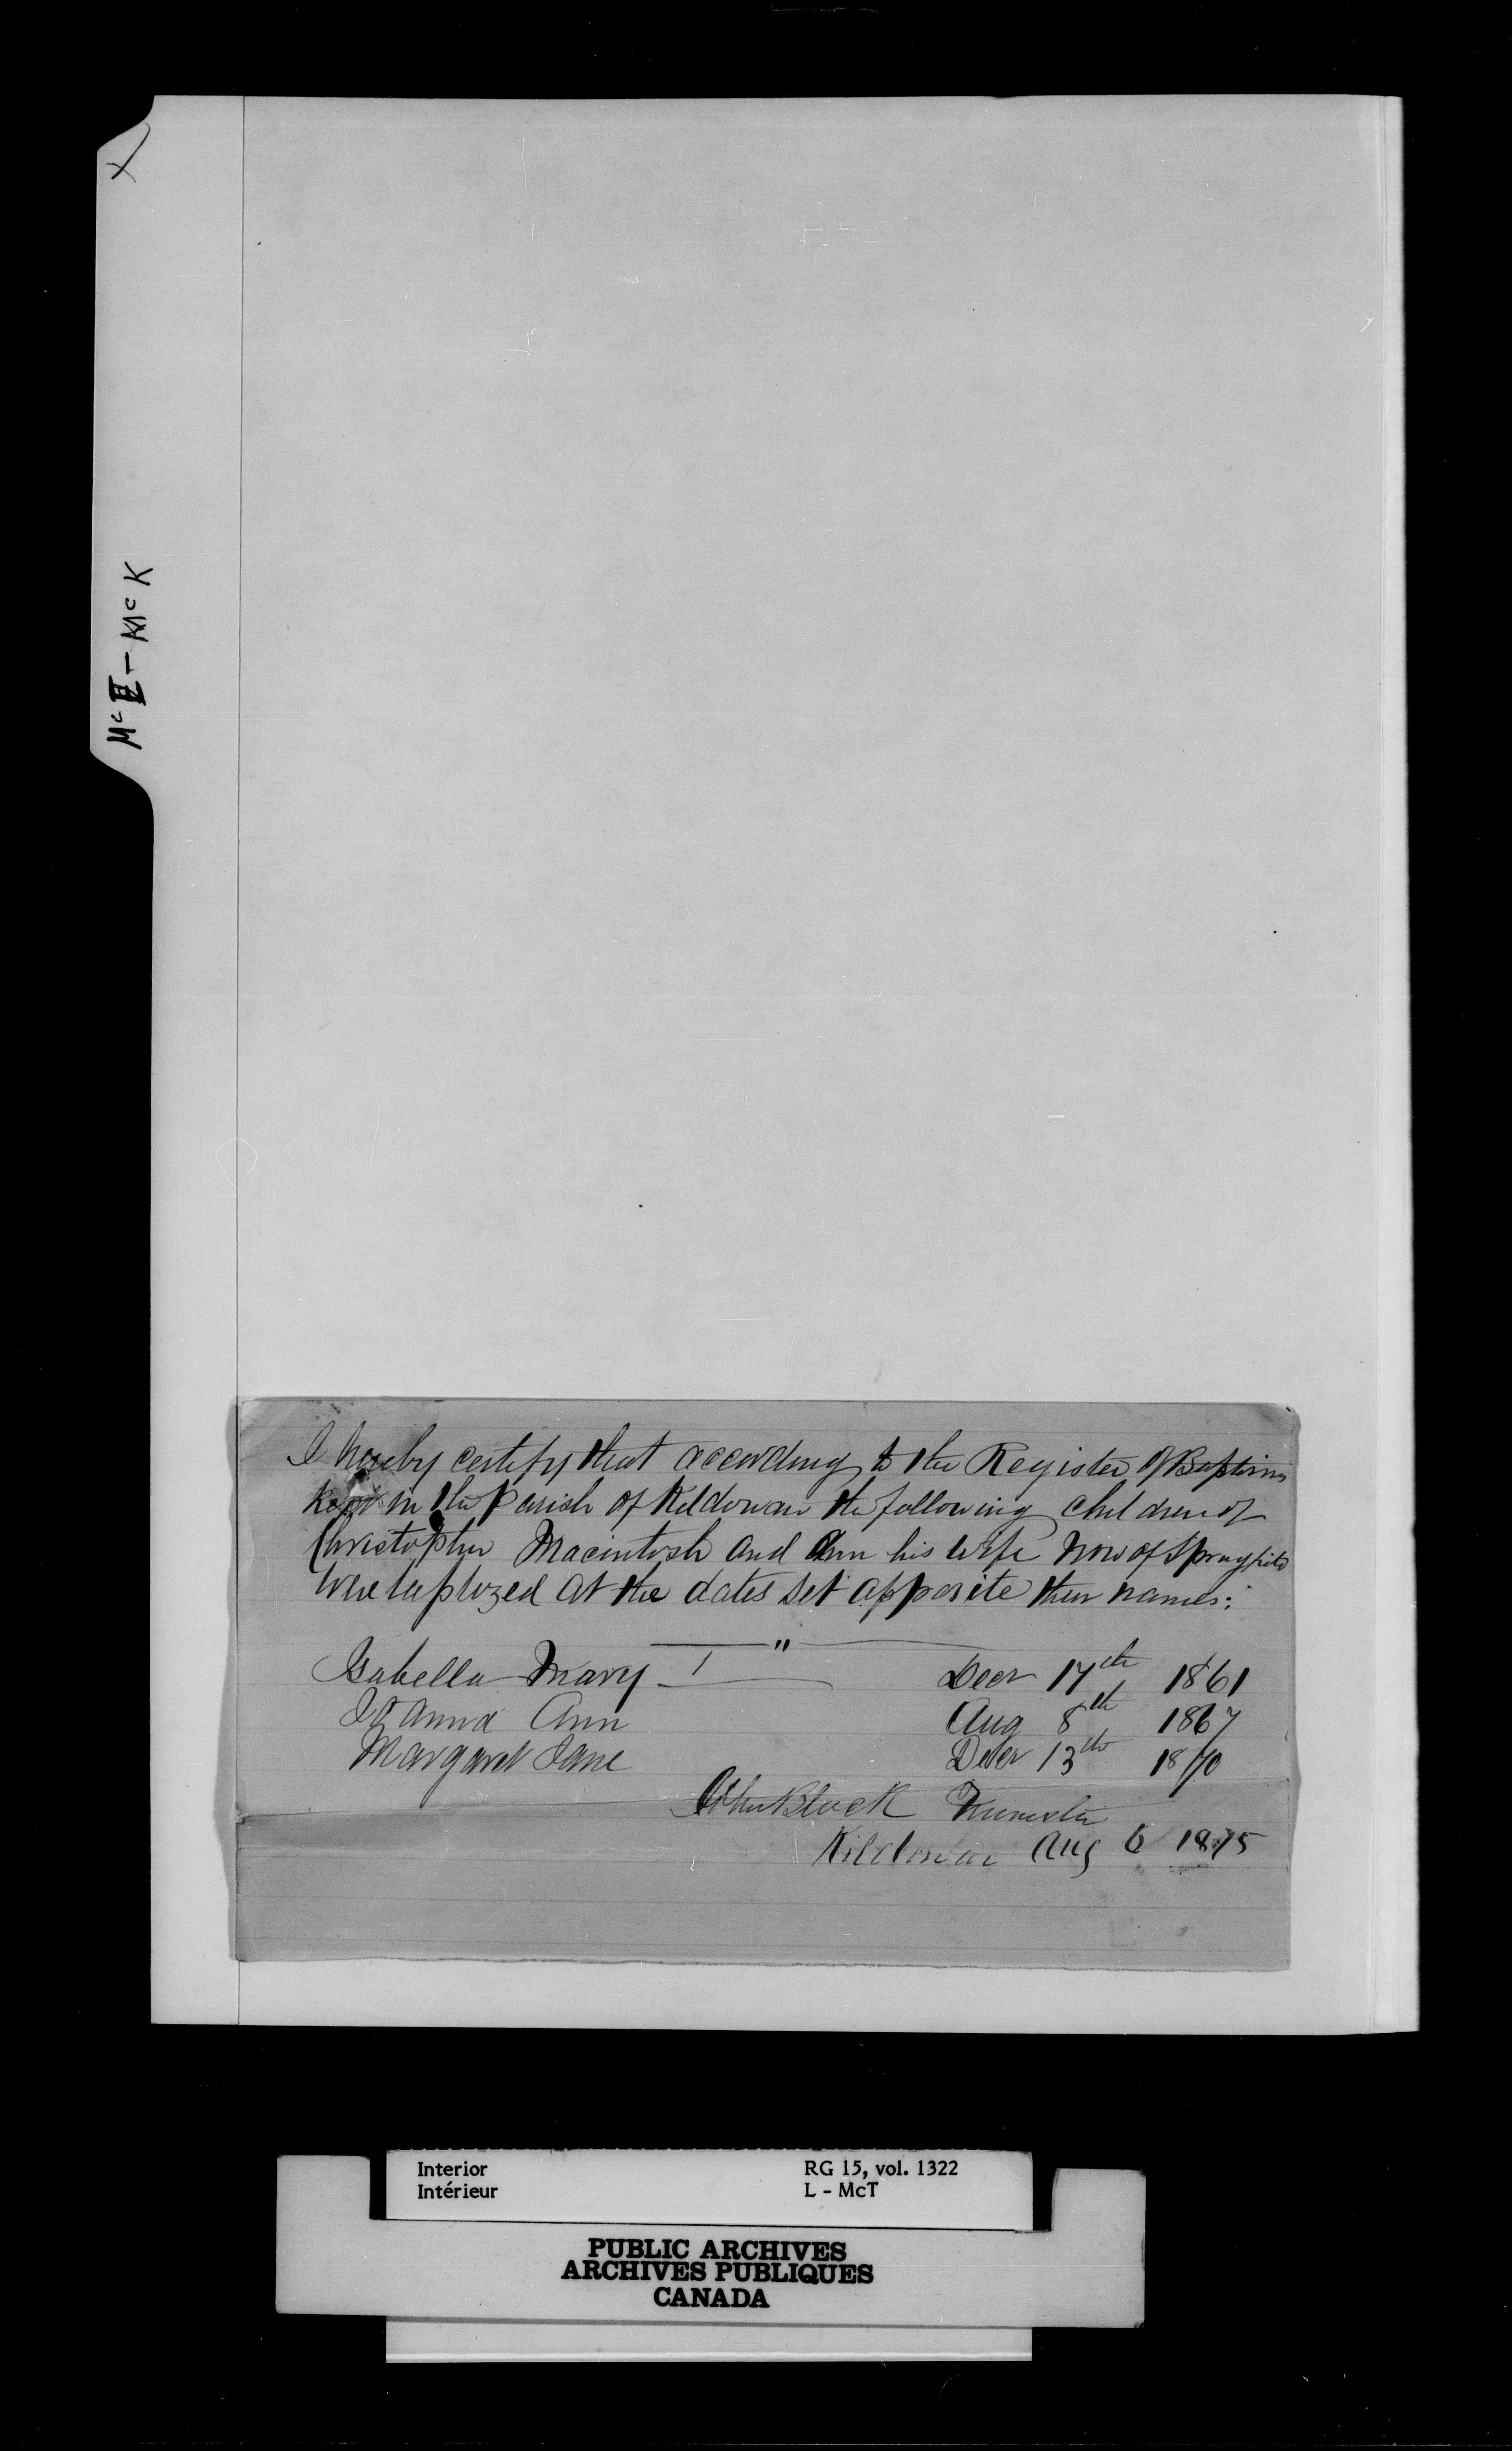 X
McE - McK
I hereby certify that according to the Register of Baptisms
kept in the Parish of Kildonan the following children of
Christopher Macintosh and Ann his wife now of Springfield
were baptized at the dates set opposite their names:
"
Isabella Mary Decr 17th 1861
Joanna Ann Aug 8th 1867
Margaret Jane Decr 13th 1870
John Black Minister
Kildonan Aug 6 1875
Interior RG 15, vol. 1322
Intérieur L - McT
PUBLIC ARCHIVES
ARCHIVES PUBLIQUES
CANADA